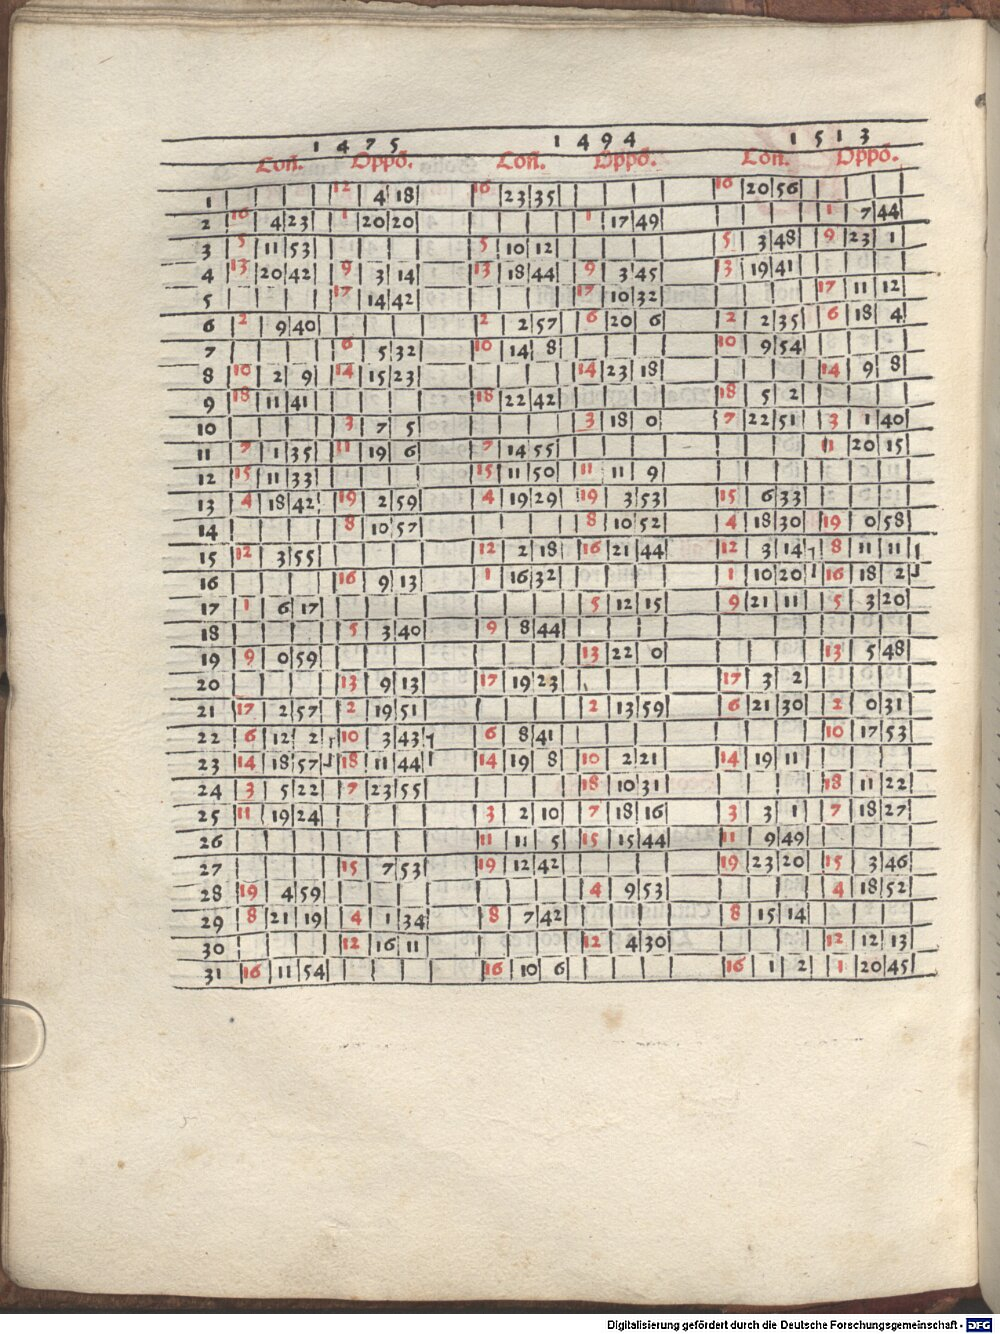 1 4 7 5 1 4 9 4 1 5 1 3
Con̄. Oppō. Con̄. Oppō. Con̄. Oppō.
1 12 4 18 16 23 35 16 20 56
2 16 4 23 1 20 20 1 17 49 1 7 44
3 5 11 53 5 10 12 5 3 48 9 23 1
4 13 20 42 9 3 14 13 18 44 9 3 45 13 19 41
5 17 14 42 17 10 32 17 11 12
6 2 9 40 2 2 57 6 20 6 2 2 35 6 18 4
7 6 5 32 10 14 8 10 9 54
8 10 2 9 14 15 23 14 23 18 14 9 8
9 18 11 41 18 22 42 18 5 2
10 3 7 5 3 18 0 7 22 51 3 1 40
11 7 1 35 11 19 6 7 14 55 11 20 15
12 15 11 33 15 11 50 11 11 9
13 4 18 42 19 2 59 4 19 29 19 3 53 15 6 33
14 8 10 57 8 10 52 4 18 30 19 0 58
15 12 3 55 12 2 18 16 21 44 12 3 14 8 11 11
16 16 9 13 1 16 32 1 10 20 16 18 2
17 1 6 17 5 12 15 9 21 11 5 3 20
18 5 3 40 9 8 44
19 9 0 59 13 22 0 13 5 48
20 13 9 13 17 19 23 17 3 2
21 17 2 57 2 19 51 2 13 59 6 21 30 2 0 31
22 6 12 2 10 3 43 6 8 41 10 17 53
23 14 18 57 18 11 44 14 19 8 10 2 21 14 19 11
24 3 5 22 7 23 55 18 10 31 18 11 22
25 11 19 24 3 2 10 7 18 16 3 3 1 7 18 27
26 11 11 5 15 15 44 11 9 49
27 15 7 53 19 12 42 19 23 20 15 3 46
28 19 4 59 4 9 53 4 18 52
29 8 21 19 4 1 34 8 7 42 8 15 14
30 12 16 11 12 4 30 12 12 13
31 16 11 54 16 10 6 16 1 2 1 20 45
Digitalisierung gefördert durch die Deutsche Forschungsgemeinschaft - DFG